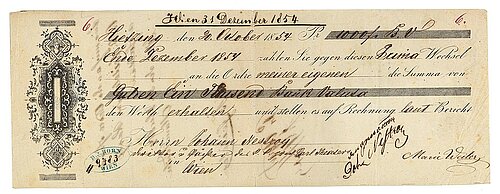 Wien 31 Dezember 1854
6. 6.
Hietzing den 20. October 1854 Pr 1000 f B. V.
Ende Dezember 1854 zahlen Sie gegen diesen Prima Wechsel
an die Ordre meiner eigenen die Summa von
Gulden Ein Tausend Bank Valuta
den Werth erhalten und stellen es auf Rechnung laut Bericht
Herrn Johann Nestroy
Direktor u Pächter des Carl Theater
Wien
angenommen
Joha Nestroy
Marie Weiler
WIEN